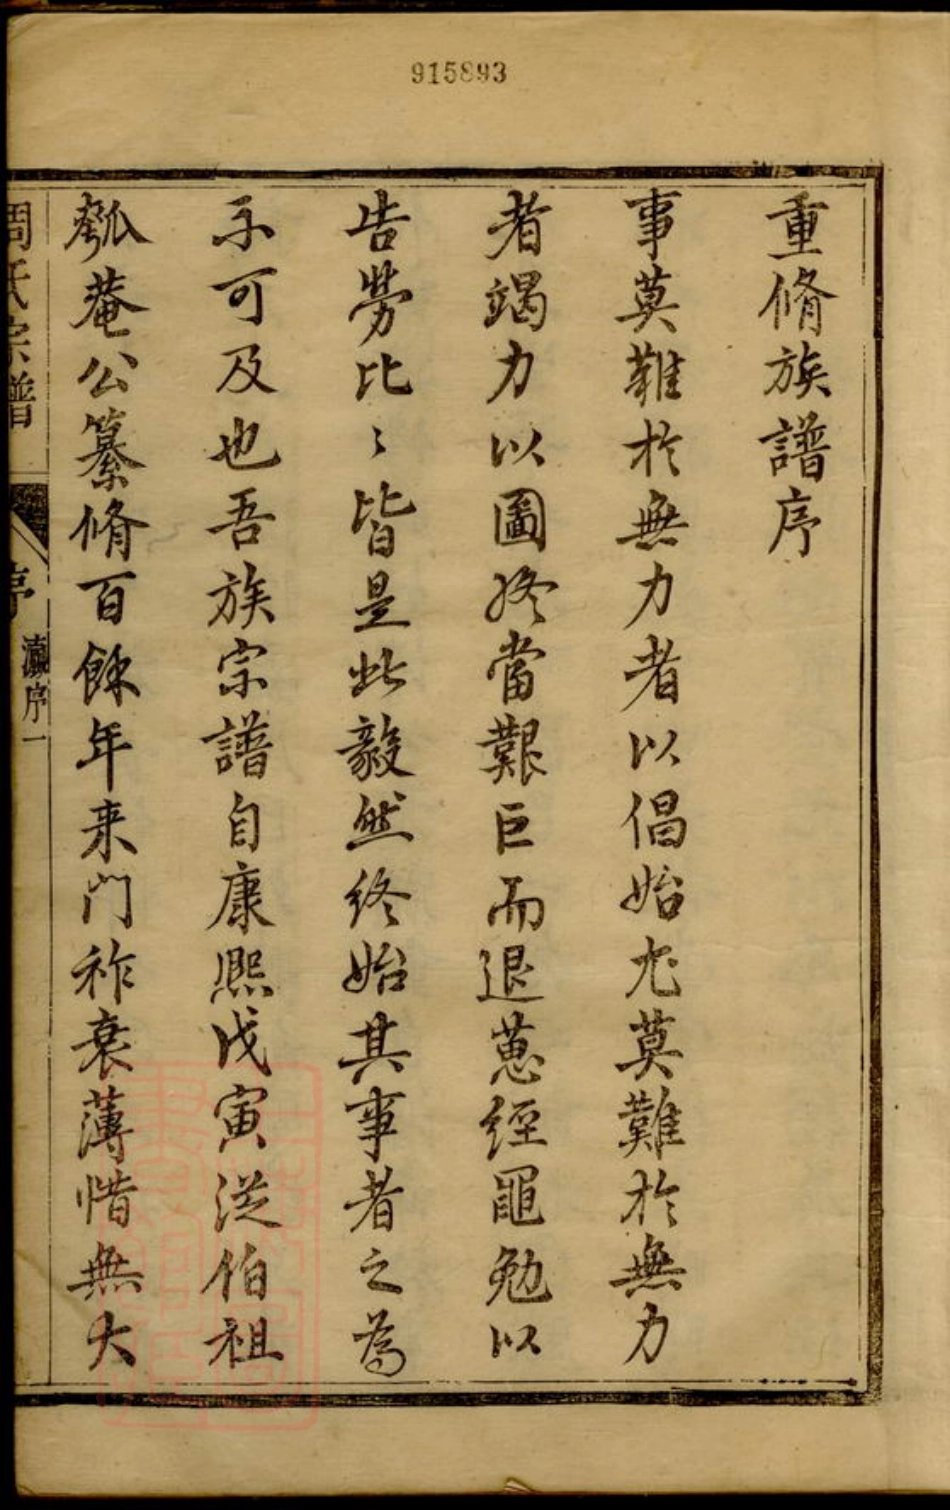 915893
重脩族譜序
事莫難於無力者以倡始尤莫難於無力
者竭力以圖終當艱巨而退葸經黽勉以
告勞比〻皆是此毅然終始其事者之為
不可及也吾族宗譜自康熙戊寅從伯祖
瓠菴公纂脩百餘年来門祚衰薄惜無大
周氏宗譜
序
瀛序一